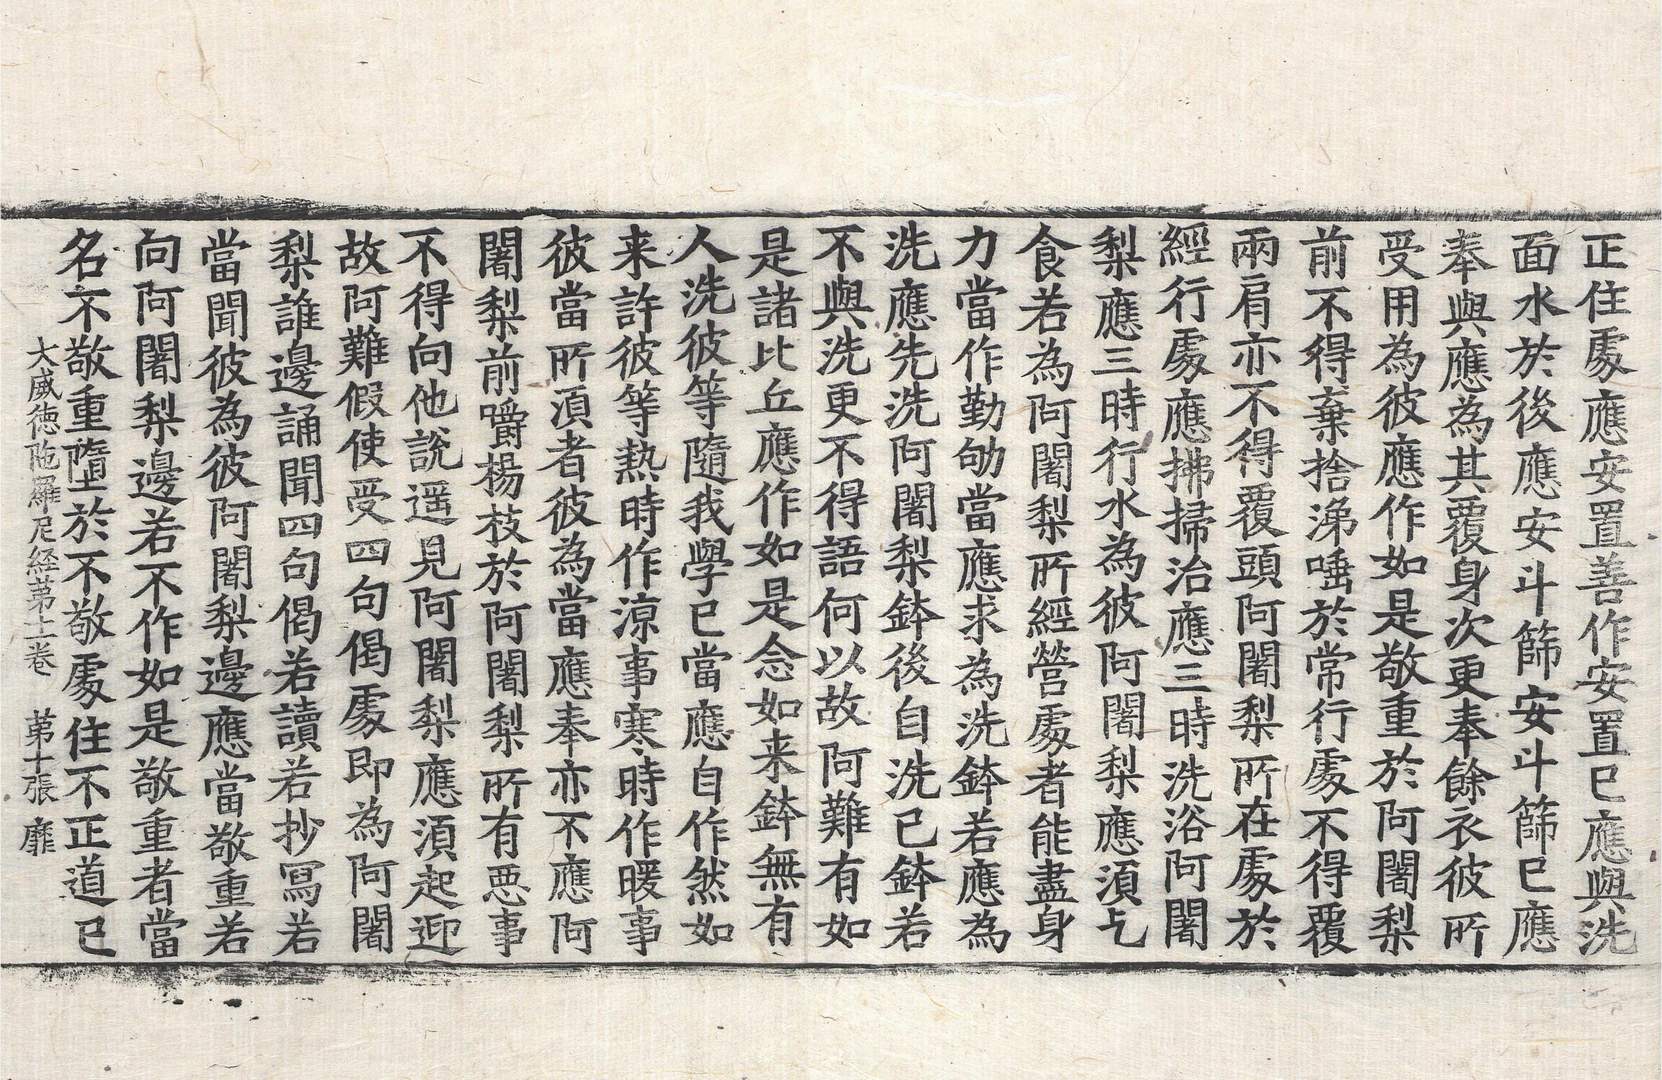 正住處應安置善作安置已應與洗
面水於後應安斗篩安斗篩已應
奉與應為其覆身次更奉餘衣彼所
受用為彼應作如是敬重於阿闍梨
前不得棄捨涕唾於常行處不得覆
兩肩亦不得覆頭阿闍梨所在處於
經行處應拂掃治應三時洗浴阿闍
梨應三時行水為彼阿闍梨應湏乞
食若為阿闍梨所經營處者能盡身
力當作勤劬當應求為洗鉢若應為
洗應先洗阿闍梨鉢後自洗已鉢若
不與洗更不得語何以故阿難有如
是諸比丘應作如是念如来鉢無有
人洗彼等隨我學已當應自作然如
来許彼等熱時作涼事寒時作暖事
彼當所湏者彼為當應奉亦不應阿
闍梨前嚼楊枝於阿闍梨所有惡事
不得向他說遥見阿闍梨應湏起迎
故阿難假使受四句偈處即為阿闍
梨誰邊誦聞四句偈若讀若抄寫若
當聞彼為彼阿闍梨邊應當敬重若
向阿闍梨邊若不作如是敬重者當
名不敬重墮於不敬處住不正道已
大威徳陁羅尼経苐十一卷　苐十張　靡